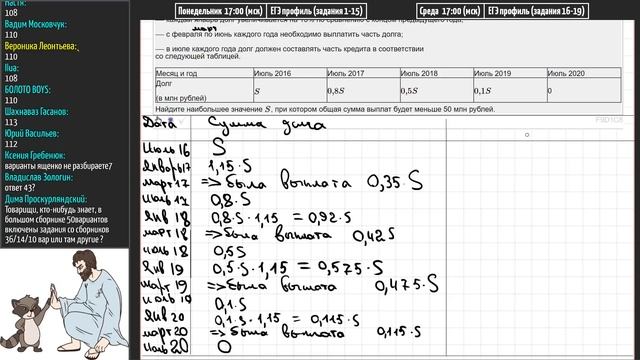 Настя:
108
Вадим Московчук:
110
Вероника Леонтьева:
110
Ilua:
108
БОЛОТО BOYS:
110
Шахнаваз Гасанов:
113
Юрий Васильев:
112
Ксения Гребенюк:
варианты ященко не разбираете?
Владислав Зологин:
ответ 43?
Дима Проскурляндский:
Товарищи, кто-нибудь знает, в
большом сборнике 50вариантов
включены задания со сборников
36/14/10 вар или там другие ?
Понедельник 17:00 (мск) ЕГЭ профиль (задания 1-15)
Среда 17:00 (мск) ЕГЭ профиль (задания 16-19)
март
— с февраля по июнь каждого года необходимо выплатить часть долга;
— в июле каждого года долг должен составлять часть кредита в соответствии
со следующей таблицей.
Месяц и год Июль 2016 Июль 2017 Июль 2018 Июль 2019 Июль 2020
Долг
(в млн рублей) S 0,8S 0,5S 0,1S 0
Найдите наибольшее значение S, при котором общая сумма выплат будет меньше 50 млн рублей.
Дата Сумма долга
Июль 16 S
Январь 17 1,15·S
март 17 => была выплата 0,35·S
Июль 17 0,8·S
Янв 18 0,8·S·1,15 = 0,92·S
март 18 => была выплата 0,42S
июль 18 0,5S
Янв 19 0,5·S·1,15 = 0,575·S
март 19 => была выплата 0,475·S
июль 19 0,1·S
Янв 20 0,1·S·1,15 = 0,115·S
март 20 => была выплата 0,115·S
июль 20 0